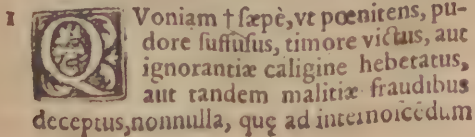 1 QVoniam † sæpè, vt pœnitens, pu-
dore suffusus, timore victus, aut
ignorantiæ caligine hebetatus,
aut tandem malitiæ fraudibus
deceptus, nonnulla, quę ad internoscēdum